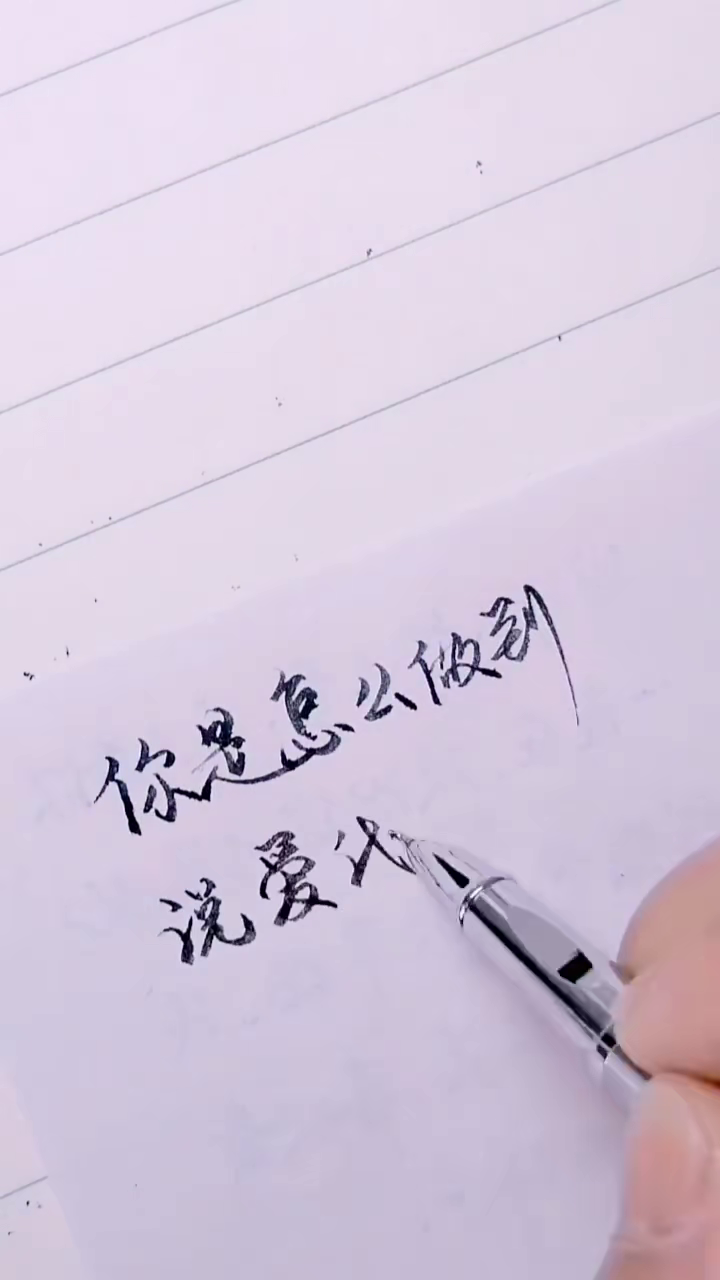 你是怎么做到
说爱